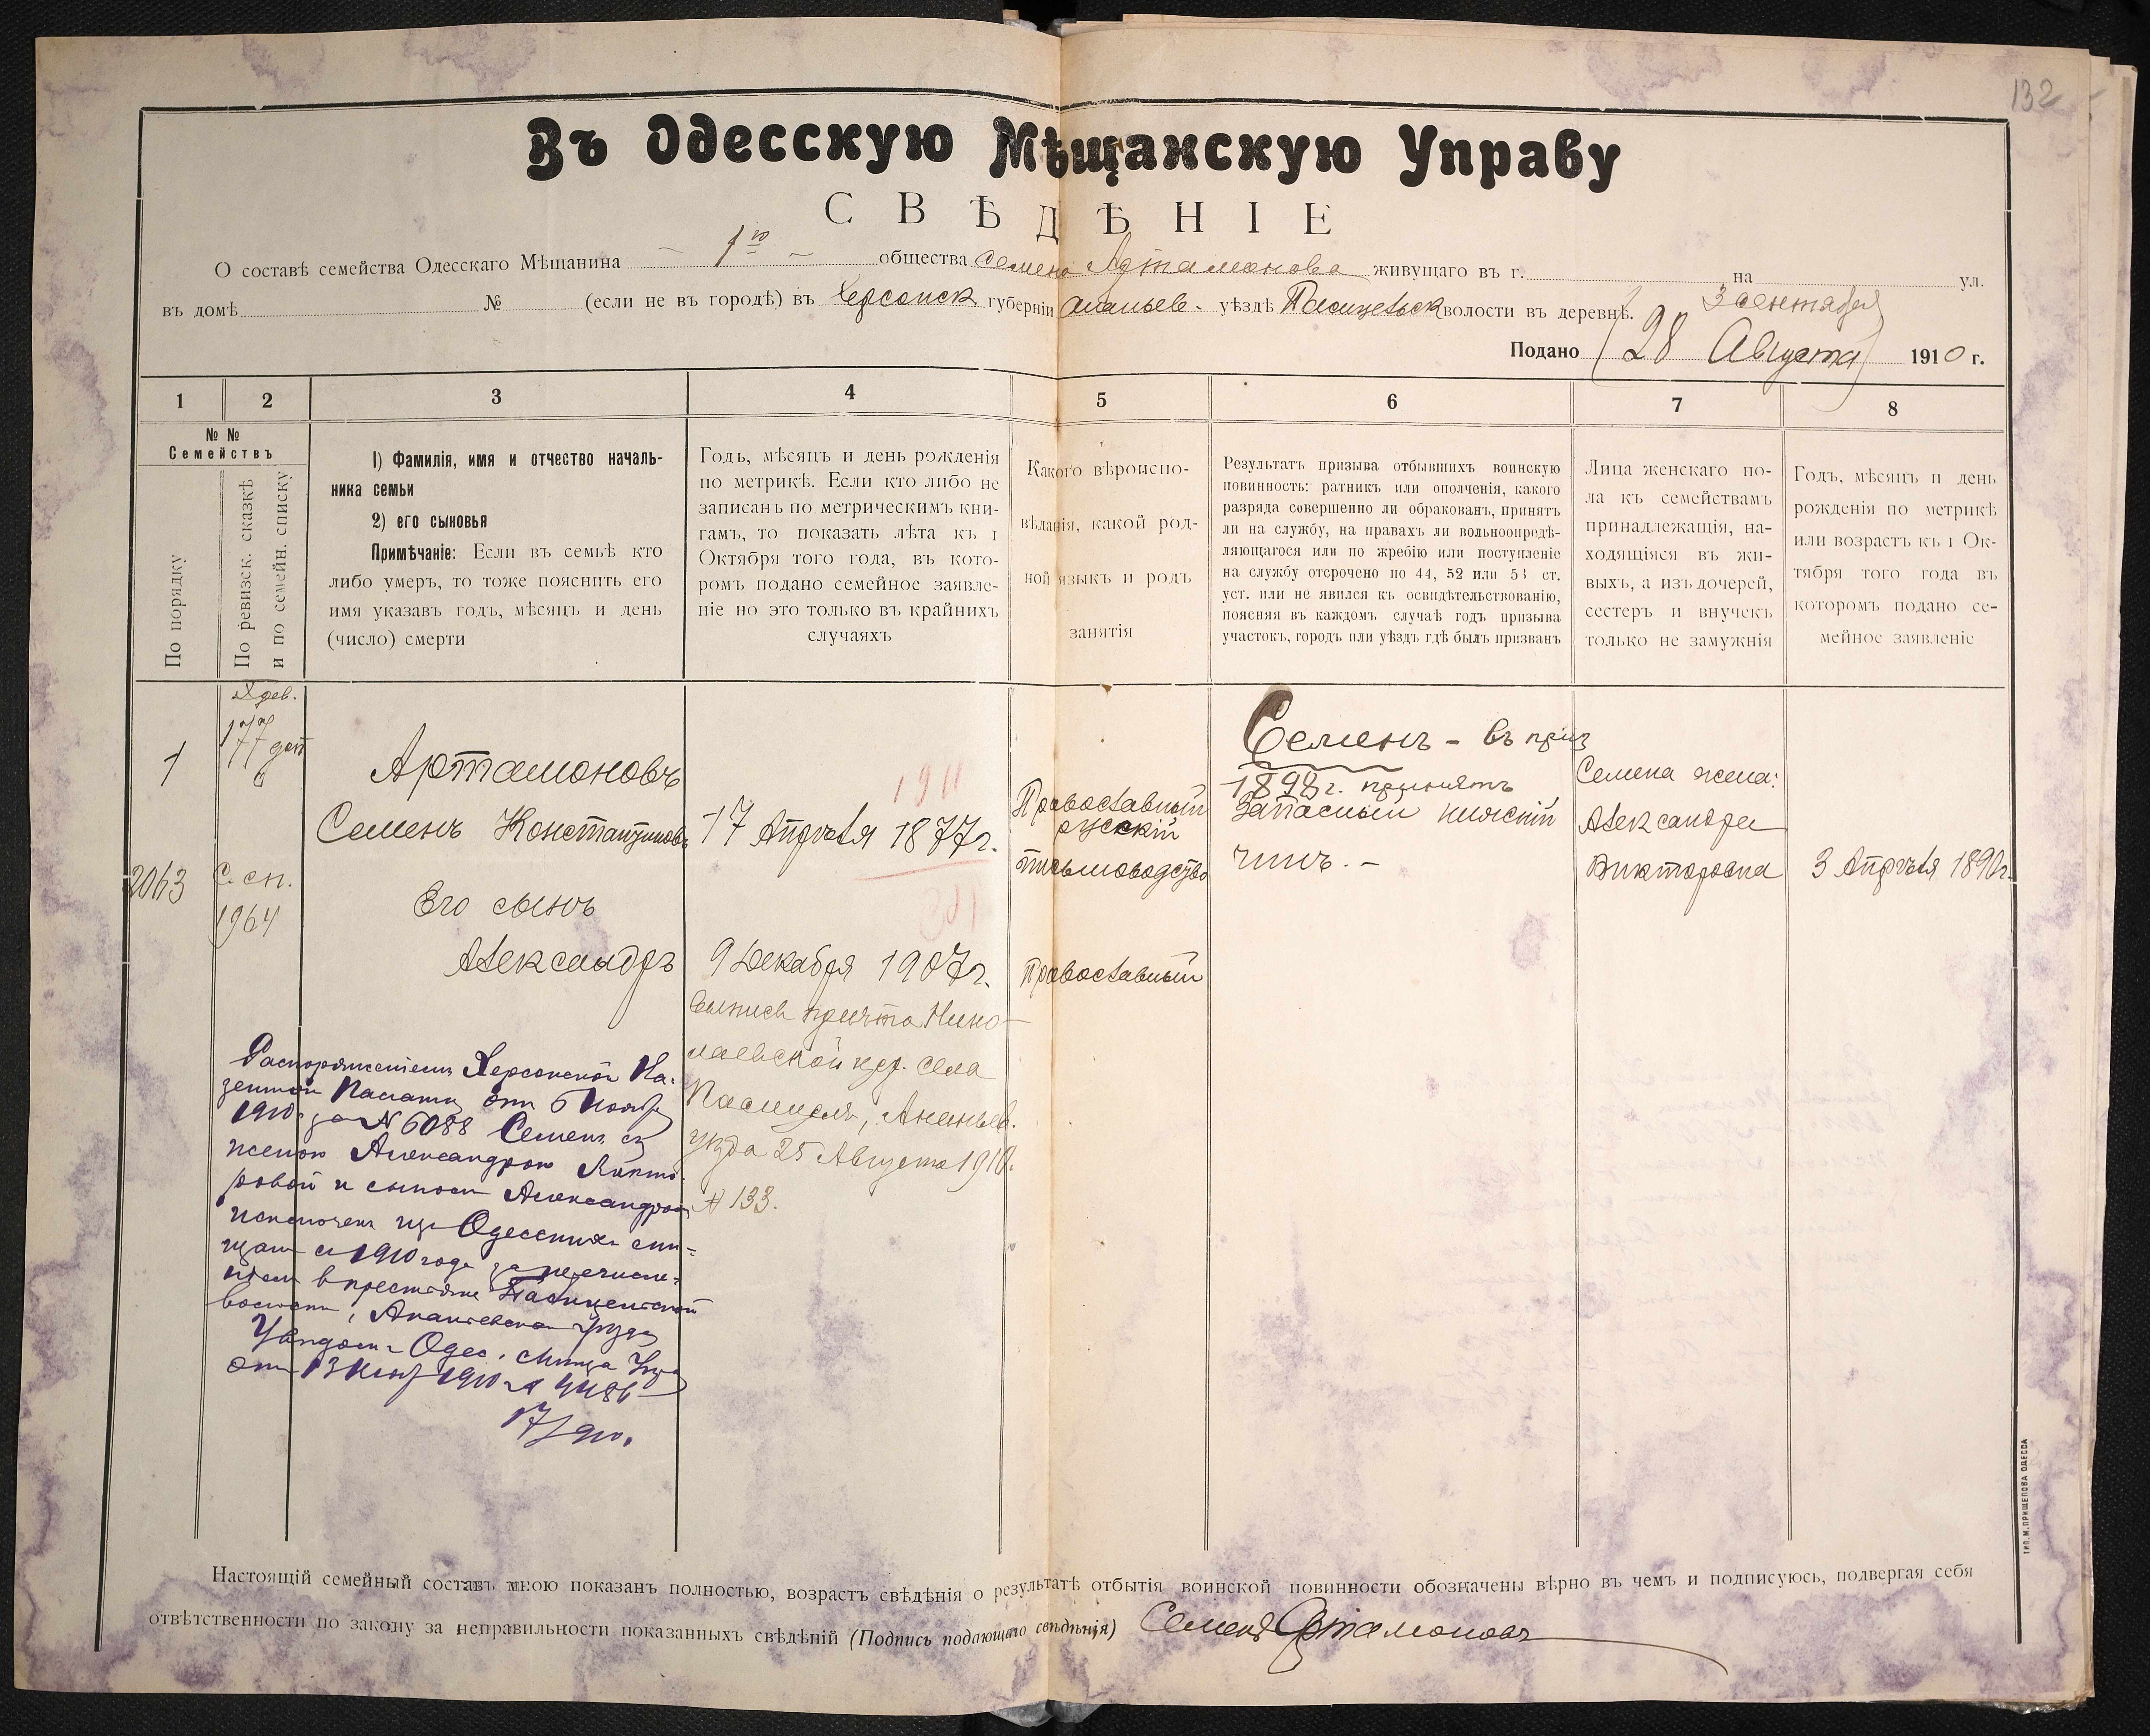 132
Въ Одесскую Мѣщанскую Управу
СВѢДѢНІЕ
О составѣ семейства Одесскаго Мѣщанина 1го общества Семена Артамонова живущаго въ г. на ул.
въ домѣ № (если не въ городѣ) въ Херсонск губерніи Ананьев. уѣздѣ Пасицельск волости въ деревнѣ.
3 сентября
Подано (28 Августа) 1910 г.
1 2 3 4 5 6 7 8
№ №
Семействъ
По порядку
По ревизск. сказкѣ
и по семейн. списку
1) Фамилія, имя и отчество началь-
ника семьи
2) его сыновья
Примѣчаніе: Если въ семьѣ кто
либо умеръ, то тоже пояснить его
имя указавъ годъ, мѣсяцъ и день
(число) смерти
Годъ, мѣсяцъ и день рожденія
по метрикѣ. Если кто либо не
записанъ по метрическимъ кни-
гамъ, то показать лѣта къ 1
Октября того года, въ кото-
ромъ подано семейное заявле-
ніе но это только въ крайнихъ
случаяхъ
Какого вѣроиспо-
вѣданія, какой род-
ной языкъ и родъ
занятія
Результатъ призыва отбывшихъ воинскую
повинность: ратникъ или ополченія, какого
разряда совершенно ли обракованъ, принятъ
ли на службу, на правахъ ли вольноопредѣ-
ляющагося или по жребію или поступленіе
на службу отсрочено по 44, 52 или 53 ст.
уст. или не явился къ освидѣтельствованію,
поясняя въ каждомъ случаѣ годъ призыва
участокъ, городъ или уѣздъ гдѣ былъ призванъ
Лица женскаго по-
ла къ семействамъ
принадлежащія, на-
ходящіяся въ жи-
выхъ, а изъ дочерей,
сестеръ и внучекъ
только не замужнія
Годъ, мѣсяцъ и день
рожденія по метрикѣ
или возрастъ къ 1 Ок-
тября того года въ
которомъ подано се-
мейное заявленіе
1
2063
177
С. сп.
1964
Артамоновъ
Семенъ Константиновъ
Его сынъ
Александръ
1911
17 Апрѣля 1877г.
9 Декабря 1907г.
выпись причта Нико-
лаевской цер. села
Пасицелъ, Ананьев.
уѣзда 25 Августа 1910.
№ 133.
Православный
русскій
письмоводство
Православный
Семенъ - въ приз
1898г. принятъ
Запасный нижній
чинъ. -
Семена жена:
Александра
Викторовна
3 Апрѣля 1890г.
Распоряженіем Херсонской Ка-
зенной Палаты от 6 Ноября
1910 за № 6088 Семен съ
женою Александрою Викто-
ровой и сыном Александром
исключен из Одесских мѣ-
щан с 1910 года за перечисле-
нием в крестьяне Пасицельской
волости, Ананьевскаго уѣзда
Увѣдом. Одес. Мѣща Упр
от 13 Нояб 1910 №
17/ 910.
Настоящій семейный составъ мною показанъ полностью, возрастъ свѣдѣнія о результатѣ отбытія воинской повинности обозначены вѣрно въ чемъ и подписуюсь, подвергая себя
отвѣтственности по закону за неправильности показанныхъ свѣдѣній (Подпись подающаго свѣдѣнія) Семенъ Артамоновъ
ТИП. М. ПРИЩЕПОВА ОДЕССА